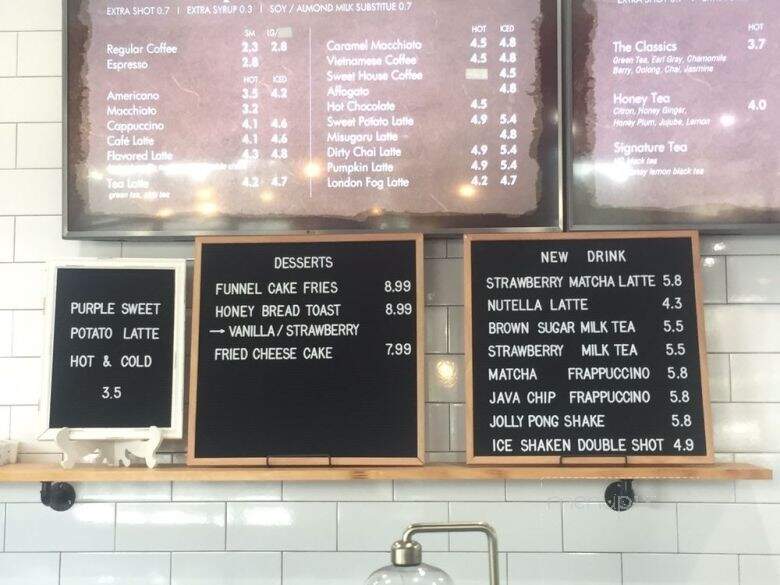 EXTRA SHOT 0.7 | EXTRA SYRUP 0.3 | SOY / ALMOND MILK SUBSTITUE 0.7
SM LG/
Regular Coffee 2.3 2.8
Espresso 2.8
HOT ICED
Americano 3.5 4.2
Macchiato 3.2
Cappuccino 4.1 4.6
Café Latte 4.1 4.6
Flavored Latte 4.3 4.8
Tea Latte 4.2 4.7
green tea,
HOT ICED
Caramel Macchiato 4.5 4.8
Vietnamese Coffee 4.5 4.8
Sweet House Coffee 4.5
Affogato 4.8
Hot Chocolate 4.5
Sweet Potato Latte 4.9 5.4
Misugaru Latte 4.8
Dirty Chai Latte 4.9 5.4
Pumpkin Latte 4.9 5.4
London Fog Latte 4.2 4.7
HOT
The Classics 3.7
Green Tea, Earl Gray, Chamomile
Berry, Oolong, Chai, Jasmine
Honey Tea 4.0
Citron, Honey Ginger,
Honey Plum, Jujube, Lemon
Signature Tea
black tea
honey lemon black tea
PURPLE SWEET
POTATO LATTE
HOT & COLD
3.5
DESSERTS
FUNNEL CAKE FRIES 8.99
HONEY BREAD TOAST 8.99
→ VANILLA / STRAWBERRY
FRIED CHEESE CAKE 7.99
NEW DRINK
STRAWBERRY MATCHA LATTE 5.8
NUTELLA LATTE 4.3
BROWN SUGAR MILK TEA 5.5
STRAWBERRY MILK TEA 5.5
MATCHA FRAPPUCCINO 5.8
JAVA CHIP FRAPPUCCINO 5.8
JOLLY PONG SHAKE 5.8
ICE SHAKEN DOUBLE SHOT 4.9